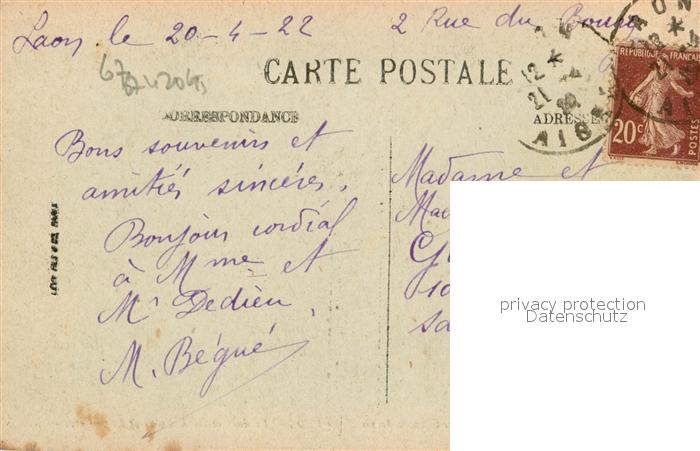 Laon le 20-4-22 2 Rue du Bourg
CARTE POSTALE
CORRESPONDANCE
ADRESSE
RÉPUBLIQUE FRANÇAISE
20c
POSTES
AISNE
Bons souvenirs et
amitiés sincères.
Bonjour cordial
à Mme et
Mr Dedieu.
M. Bégué
Madame et
LEVY FILS & Cie, PARIS
privacy protection
Datenschutz